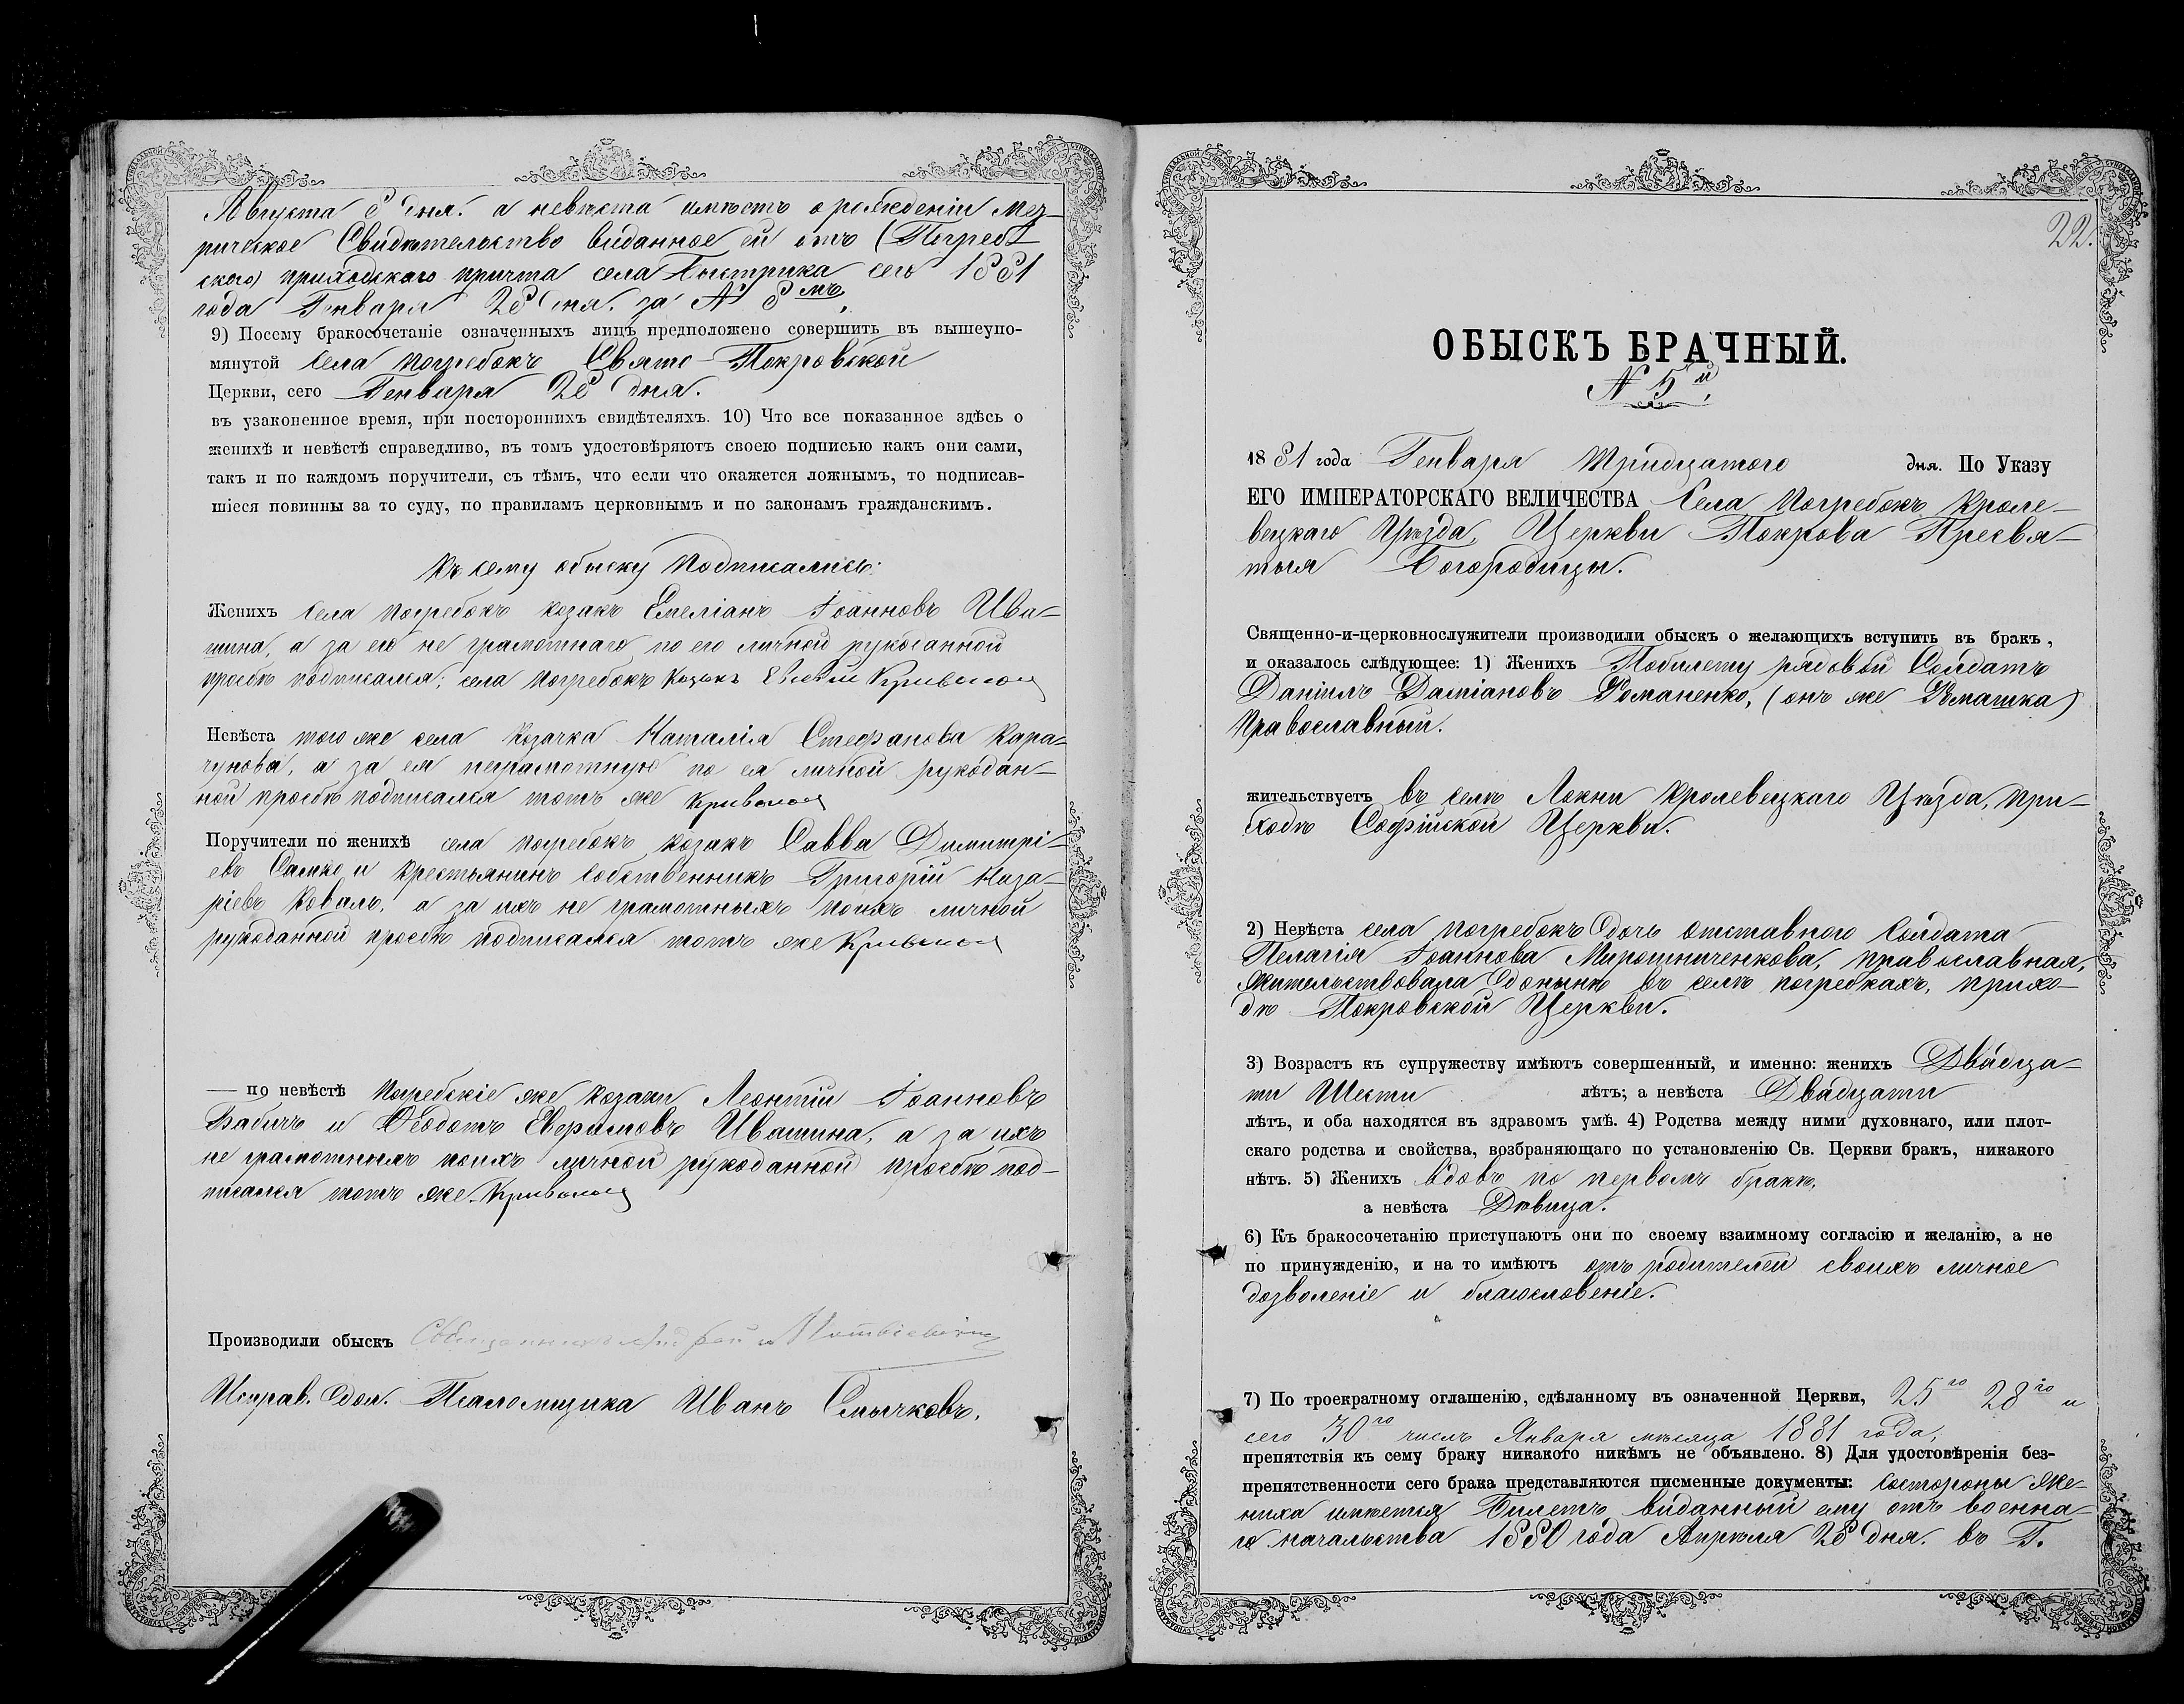 Августа 8 дня. а невѣста имѣетъ о рожденіи Мет-
рическое Свидѣтельство виданное ей отъ (Погреб-
скаго) приходскаго причта села Быстрика сего 1881
года Генваря 28 дня. за № 8 мъ.
9) Посему бракосочетаніе означенныхъ лицъ предположено совершить въ вышеупо-
мянутой Села Погребокъ Свято-Покровской
Церкви, сего Генваря 28 дня.
въ узаконенное время, при постороннихъ свидѣтеляхъ. 10) Что все показанное здѣсь о
женихѣ и невѣстѣ справедливо, въ томъ удостовѣряютъ своею подписью какъ они сами,
такъ и по каждомъ поручители, съ тѣмъ, что если что окажется ложнымъ, то подписав-
шіеся повинны за то суду, по правиламъ церковнымъ и по законамъ гражданскимъ.
Къ сему обыску Подписались:
Женихъ Села Погребокъ козакъ Емеліанъ Іоанновъ Ива-
шина, а за его не грамотнаго по его личной рукоданной
прозбѣ подписался; села Погребокъ Козакъ
Невѣста того же села Козачка Наталія Стефанова Кара-
чунова, а за ея неграмотную по ея личной рукодан-
ной прозбѣ подписался тотъ же
Поручители по женихѣ села Погребокъ козакъ Савва Димитрі-
евъ Самко, и Крестьянинъ Собственникъ Григорій Наза-
ріевъ Коваль, а за ихъ не грамотныхъ поихъ личной
рукоданной прозбѣ подписался тотъ же
— по невѣстѣ Погребскіе же козаки Леонтій Іоанновъ
Бабичъ и Ѳеодотъ Евфимовъ Ивашина, а за ихъ
не грамотныхъ поихъ личной рукоданной прозбѣ под-
писался тотъ же
Производили обыскъ
Исправ. дол. Псаломщика Иванъ Смычковъ.
22.
ОБЫСКЪ БРАЧНЫЙ.
N 5й
1881 года Генваря тридцатого дня. По Указу
ЕГО ИМПЕРАТОРСКАГО ВЕЛИЧЕСТВА Села Погребокъ Кроле-
вецкаго Уѣзда, Церкви Покрова Пресвя-
тыя Богородицы.
Священно-и-церковнослужители производили обыскъ о желающихъ вступить въ бракъ,
и оказалось слѣдующее: 1) Женихъ Побилету рядовой Солдатъ
Даніилъ Даміановъ Романенко, (онъ же Ромашка)
Православный.
жительствуетъ въ селѣ Локни Кролевецкаго Уѣзда, при-
ходѣ Софійской Церкви.
2) Невѣста села Погребокъ дочь отставного Солдата
Пелагія Іоаннова Мирошниченкова, православная,
жительствовала донынѣ въ селѣ Погребкахъ, прихо-
дѣ Покровской Церкви.
3) Возрастъ къ супружеству имѣютъ совершенный, и именно: женихъ Двадца-
ти Шести лѣтъ; а невѣста Двадцати
лѣтъ, и оба находятся въ здравомъ умѣ. 4) Родства между ними духовнаго, или плот-
скаго родства и свойства, возбраняющаго по установленію Св. Церкви бракъ, никакого
нѣтъ. 5) Женихъ вдовъ по первомъ бракѣ,
а невѣста Дѣвица.
6) Къ бракосочетанію приступаютъ они по своему взаимному согласію и желанію, а не
по принужденію, и на то имѣютъ отъ родителей своихъ личное
дозволеніе и благословеніе.
7) По троекратному оглашенію, сдѣланному въ означенной Церкви, 25го 28го и
сего 30го числъ Января мѣсяца 1881 года,
препятствія къ сему браку никакого никѣмъ не объявлено. 8) Для удостовѣренія без-
препятственности сего брака представляются писменные документы: Состороны же-
ниха имѣется Билетъ виданный ему отъ военна-
го начальства 1880 года Апрѣля 28 дня. въ Г.